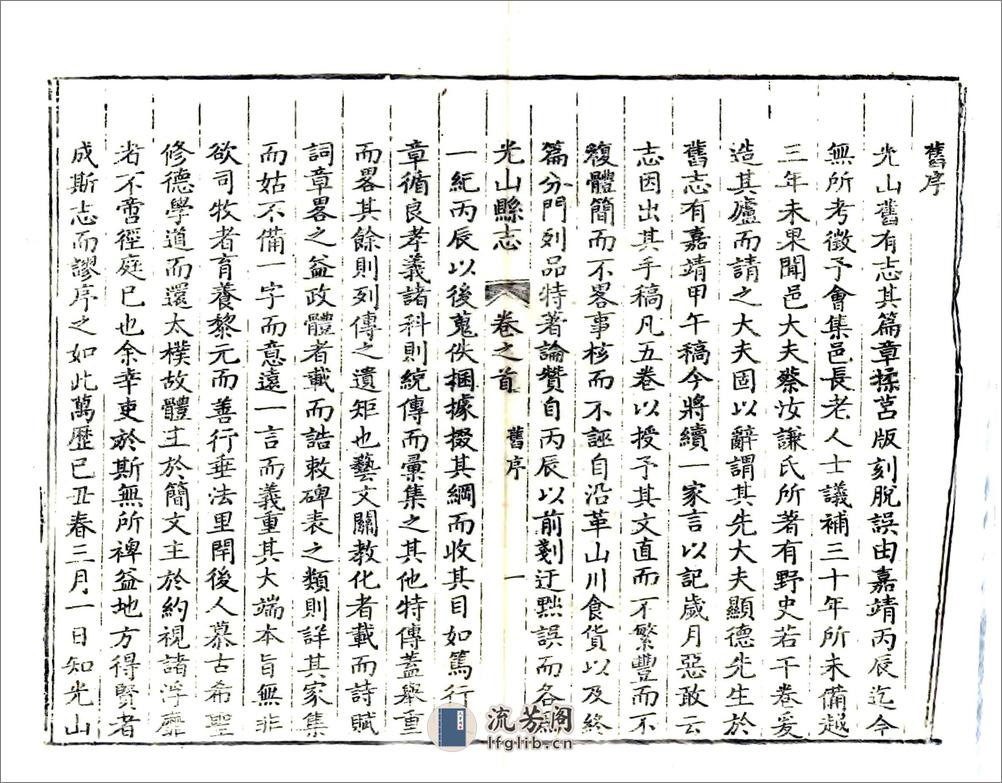 舊序
光山舊有志其篇章揉莒版刻脫誤由嘉靖丙辰迄今
無所考徵予會集邑長老人士議補三十年所未備越
三年未果聞邑大夫蔡汝謙氏所著有野史若干卷爰
造其廬而請之大夫固以辭謂其先大夫顯德先生於
舊志有嘉靖甲午稿今將續一家言以記歲月惡敢云
志因出其手稿凡五卷以授予其文直而不繁豐而不
複體簡而不畧事核而不誣自沿革山川食貨以及終
篇分門列品特著論贊自丙辰以前剗迂黜誤而各
光山縣志 卷之首 舊序 一
一紀丙辰以後蒐佚捃據掇其綱而收其目如篤行
章循良孝義諸科則統傳而彙集之其他特傳蓋舉重
而畧其餘則列傳之遺矩也藝文關教化者載而詩賦
詞章畧之益政體者載而誥敕碑表之類則詳其家集
而姑不備一字而意遠一言而義重其大端本旨無非
欲司牧者育養黎元而善行垂法里閈後人慕古希聖
修德學道而還太樸故體主於簡文主於約視諸浮靡
者不啻徑庭已也余幸吏於斯無所裨益地方得賢者
成斯志而謬序之如此萬歷已丑春三月一日知光山
流芳閣
lfglib.cn